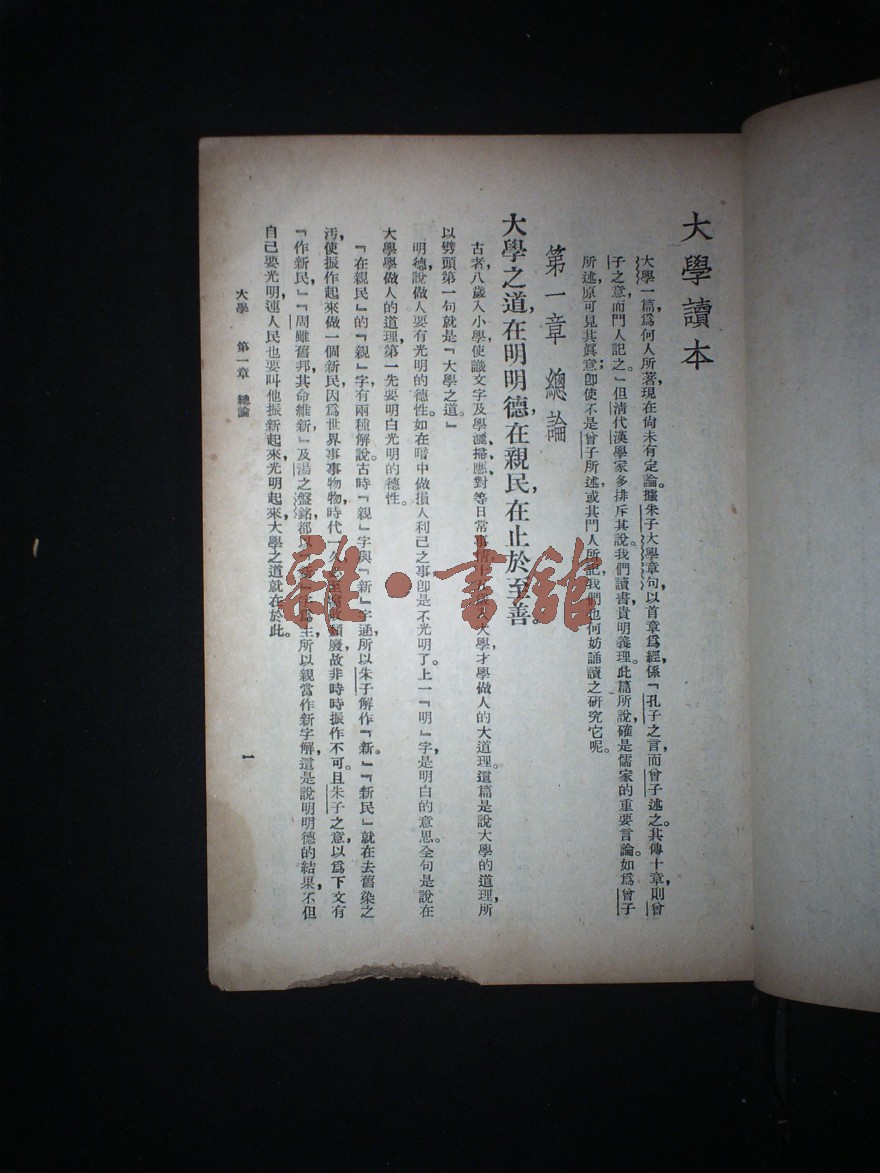 大學讀本
大學一篇，爲何人所著，現在尙未有定論。據朱子大學章句以首章爲經，係「孔子之言，而曾子述之。其傳十章，則曾
子之意而門人記之。」但淸代漢學家多排斥其說。我們讀書，貴明義理。此篇所說，確是儒家的重要言論。如爲曾子
所述，原可見其眞意；卽使不是曾子所述，或其門人所記，我們也何妨誦讀之，硏究它呢。
第一章 總論
大學之道，在明明德，在親民，在止於至善。
古者八歲入小學，使識文字及學灑、掃、應、對等日常事 大學，才學做人的大道理。這篇是說大學的道理，所
以劈頭第一句就是「大學之道。」
明德說做人要有光明的德性。如在暗中做損人利己之事，卽是不光明了。上一「明」字是明白的意思。全句是說在
大學學做人的道理，第一先要明白光明的德性。
「在親民」的「親」字有兩種解說。古時「親」字與「新」字通，所以朱子解作「新。」「新民」就在去舊染之
汚，使振作起來做一個新民，因爲世界事事物物，時代一久， 頹廢，故非時時振作不可。且朱子之意，以爲下文有
「作新民，」「周雖舊邦，其命維新」及湯之盤銘，都以「新」字爲主，所以親當作新字解，這是說明明德的結果，不但
自己要光明，連人民也要叫他振新起來，光明起來，大學之道就在於此。
大學 第一章 總論
一
雜·書館